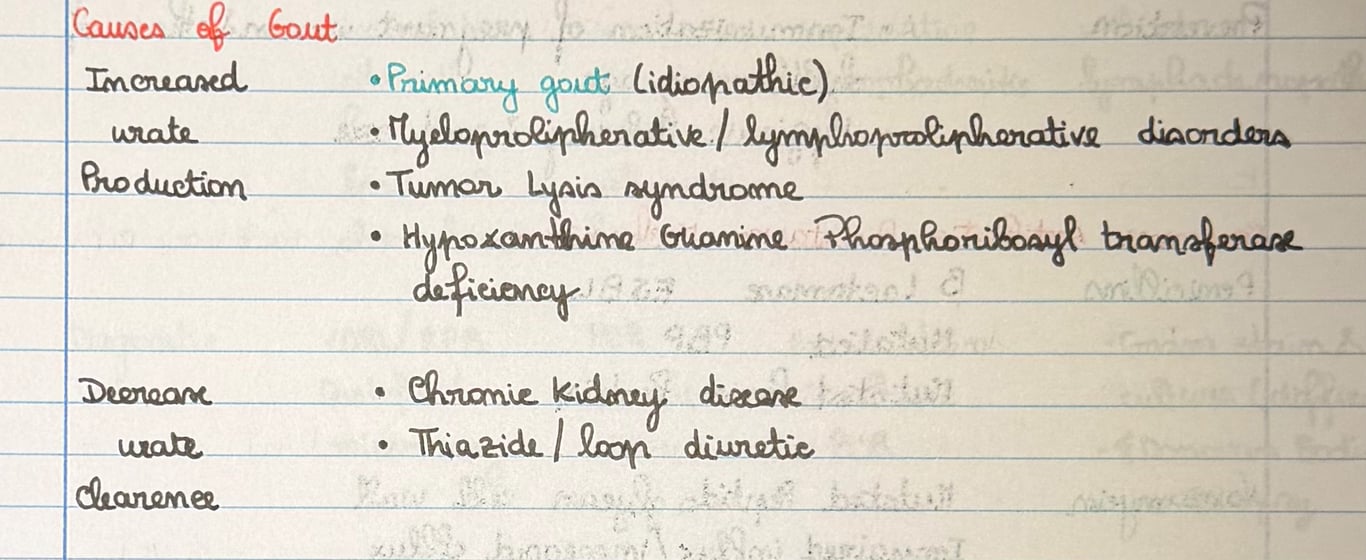 Causes of Gout
Increased • Primary gout (idiopathic)
urate • Myeloprolipherative / lymphoprolipherative disorders
Production • Tumor Lysis syndrome
• Hypoxanthine Guanine Phosphoribosyl transferase
deficiency
Decrease • Chronic Kidney disease
urate • Thiazide / loop diuretic
Clearence